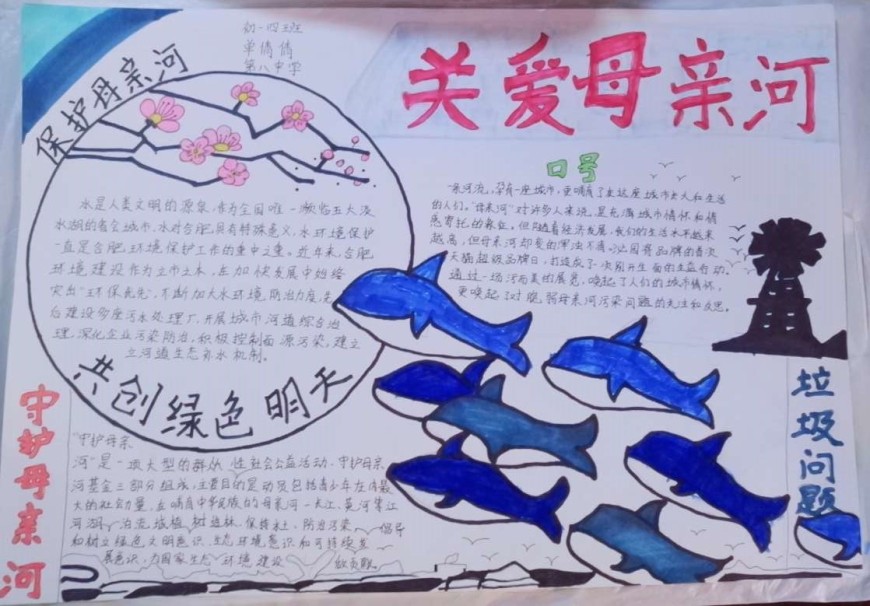 初一四班
单倩倩
第八中学
关爱母亲河
保护母亲河
水是人类文明的源泉,作为全国唯一濒临五大淡
水湖的省会城市,水对合肥具有特殊意义,水环境保护
一直是合肥环境保护工作的重中之重。近年来,合肥
环境建设作为立市之本,在加快发展中始终
突出"环保优先",不断加大水环境防治力度,先
后建设多座污水处理厂,开展城市河道综合治
理,深化企业污染防治,积极控制面源污染,建立
立河道生态补水机制。
共创绿色明天
口号
一条河流,孕育一座城市,更哺育了在这座城市长大和生活
的人们。"母亲河"对许多人来说,是充满城市情怀和情
感寄托的象征。但是随着经济发展,我们的生活水平越来
越高,但母亲河却变的浑浊不清。沁园品牌的首次
天猫超级品牌日,打造成了一次别开生面的公益行动
通过一场河与美的展览,唤起了人们的城市情怀,
更唤起了对 母亲河污染问题的关注和反思。
守护母亲河
"守护母亲
河"是一项大型的群众 性社会公益活动,守护母亲
河基金三部分组成,主要目的是动员包括青少年在内最
大的社会力量,在哺育中华民族的母亲河-长江、黄河等江
河湖 流域植树造林,保持水土,防治污染 倡导
和树立绿色文明意识、生态环境意识和可持续发
展意识,为国家生态 环境 建设 做贡献。
垃圾问题